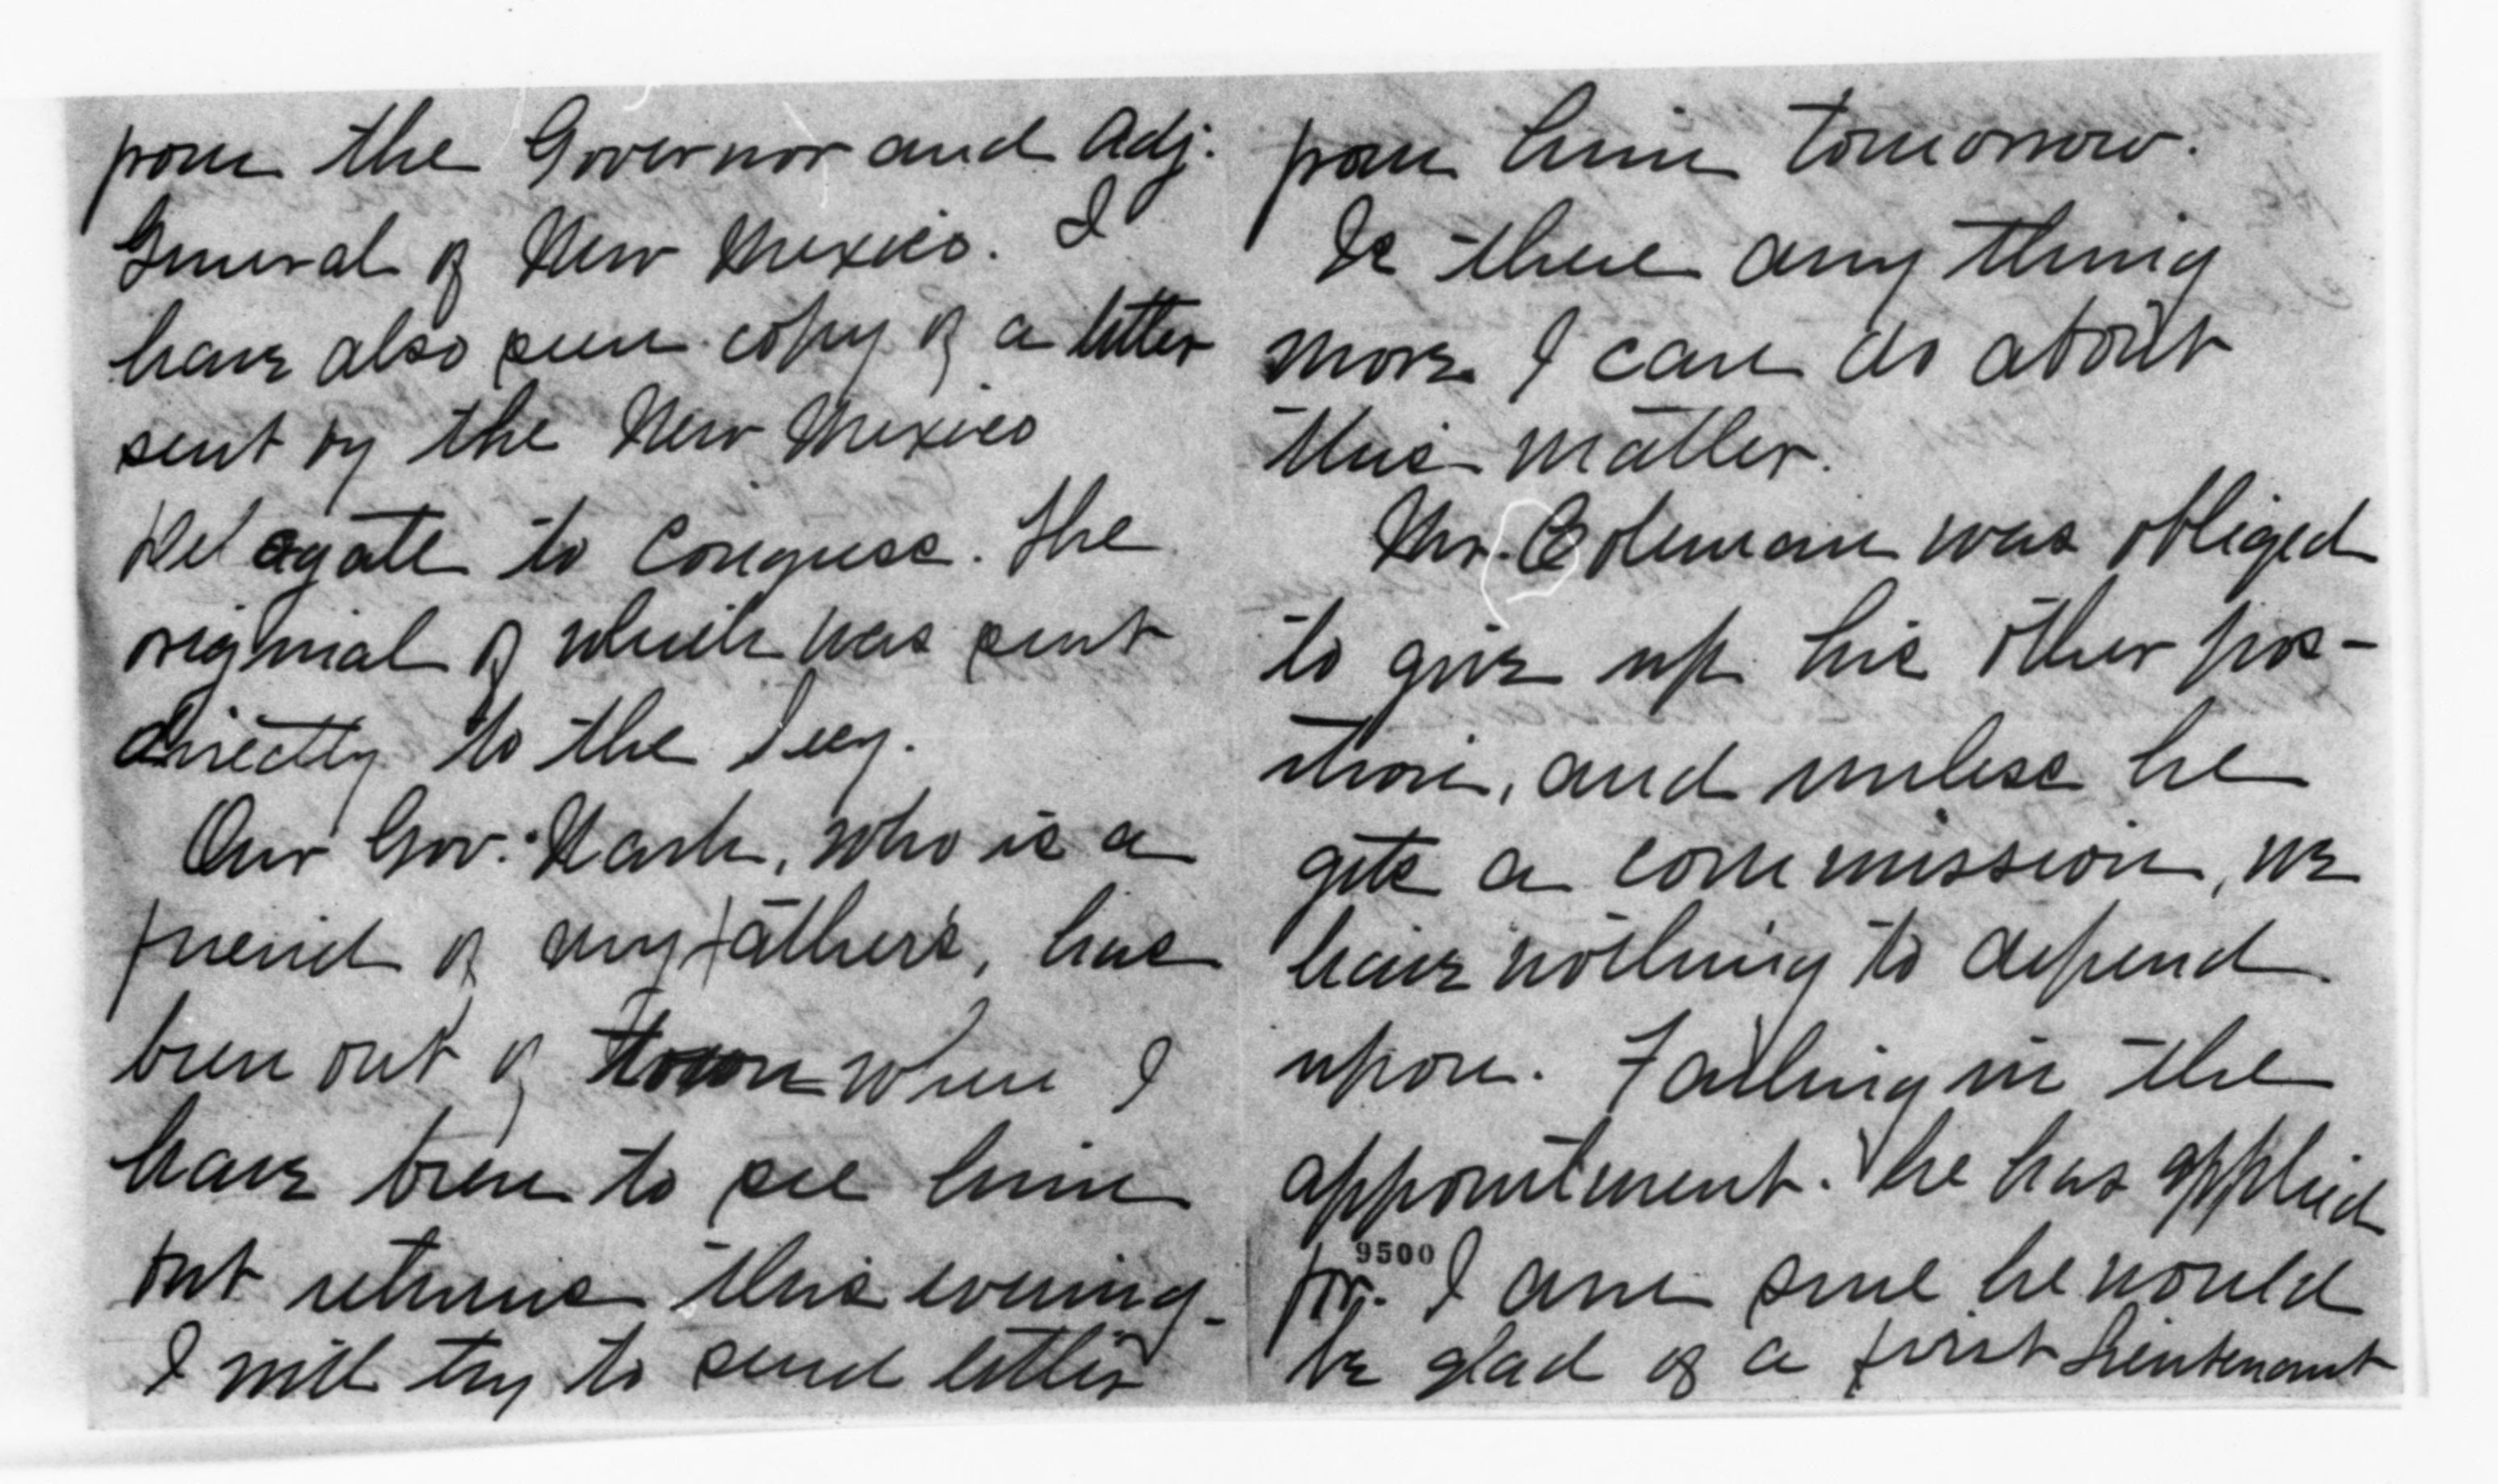 from the Governor and Adj.
General of New Mexico. I
have also seen copy of a letter
sent by the New Mexico
Delagate to Congress. The
original of which was sent
directly to the Secy.
Our Gov. Nash, who is a
friend of my father's, has
been out of town when I
have been to see him
but returns this evening-
I will try to send letter
from him tomorrow.
Is there any thing
more I can do about
this matter.
Mr. Coleman was obliged
to give up his other pos-
ition, and unless he
gets a commission, we
have nothing to depend
upon. Failing in the
appointment. he has applied
for. I am sure he would
9500
be glad of a first Lieutenant